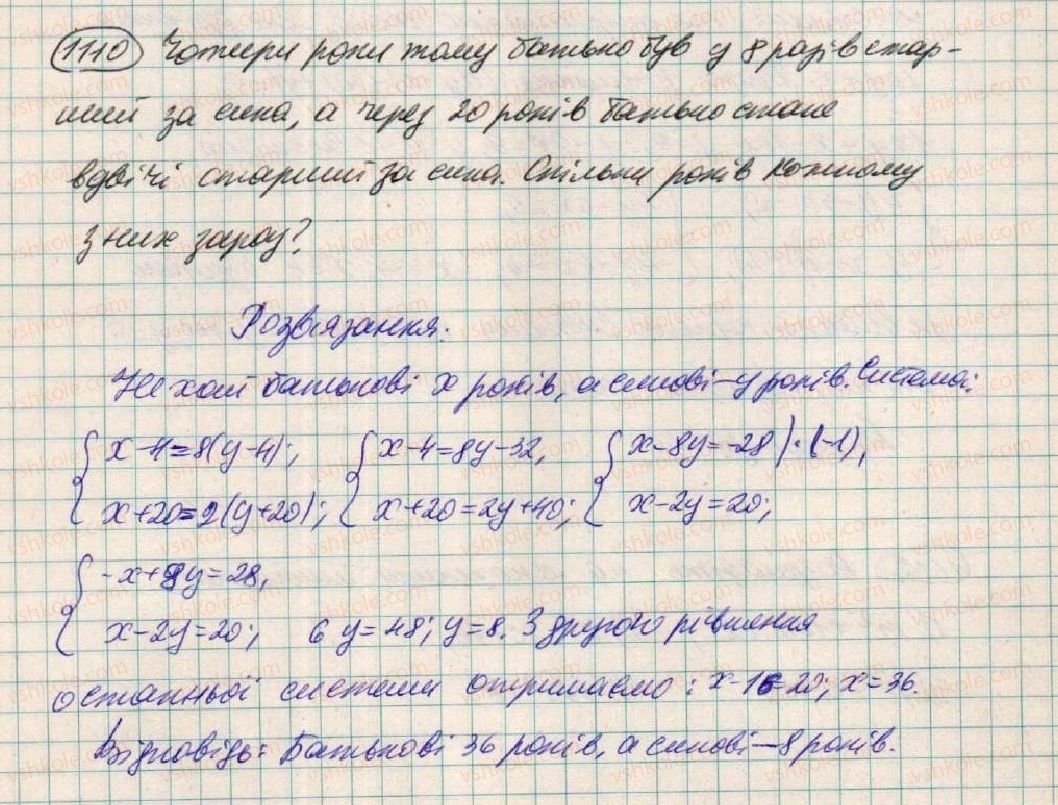 1110 Чотири роки тому батько був у 8 разів стар-
ший за сина, а через 20 років батько стане
вдвічі старший за сина. Скільки років кожному
з них зараз?
Розв'язання.
Нехай батькові x років, а синові – y років. Система:
{ x-4=8(y-4); { x-4=8y-32, { x-8y=-28 |·(-1),
x+20=2(y+20); x+20=2y+40; x-2y=20;
{ -x+8y=28,
x-2y=20; 6y=48; y=8. З другого рівняння
останньої системи отримаємо: x-16=20; x=36.
Відповідь: Батькові 36 років, а синові – 8 років.